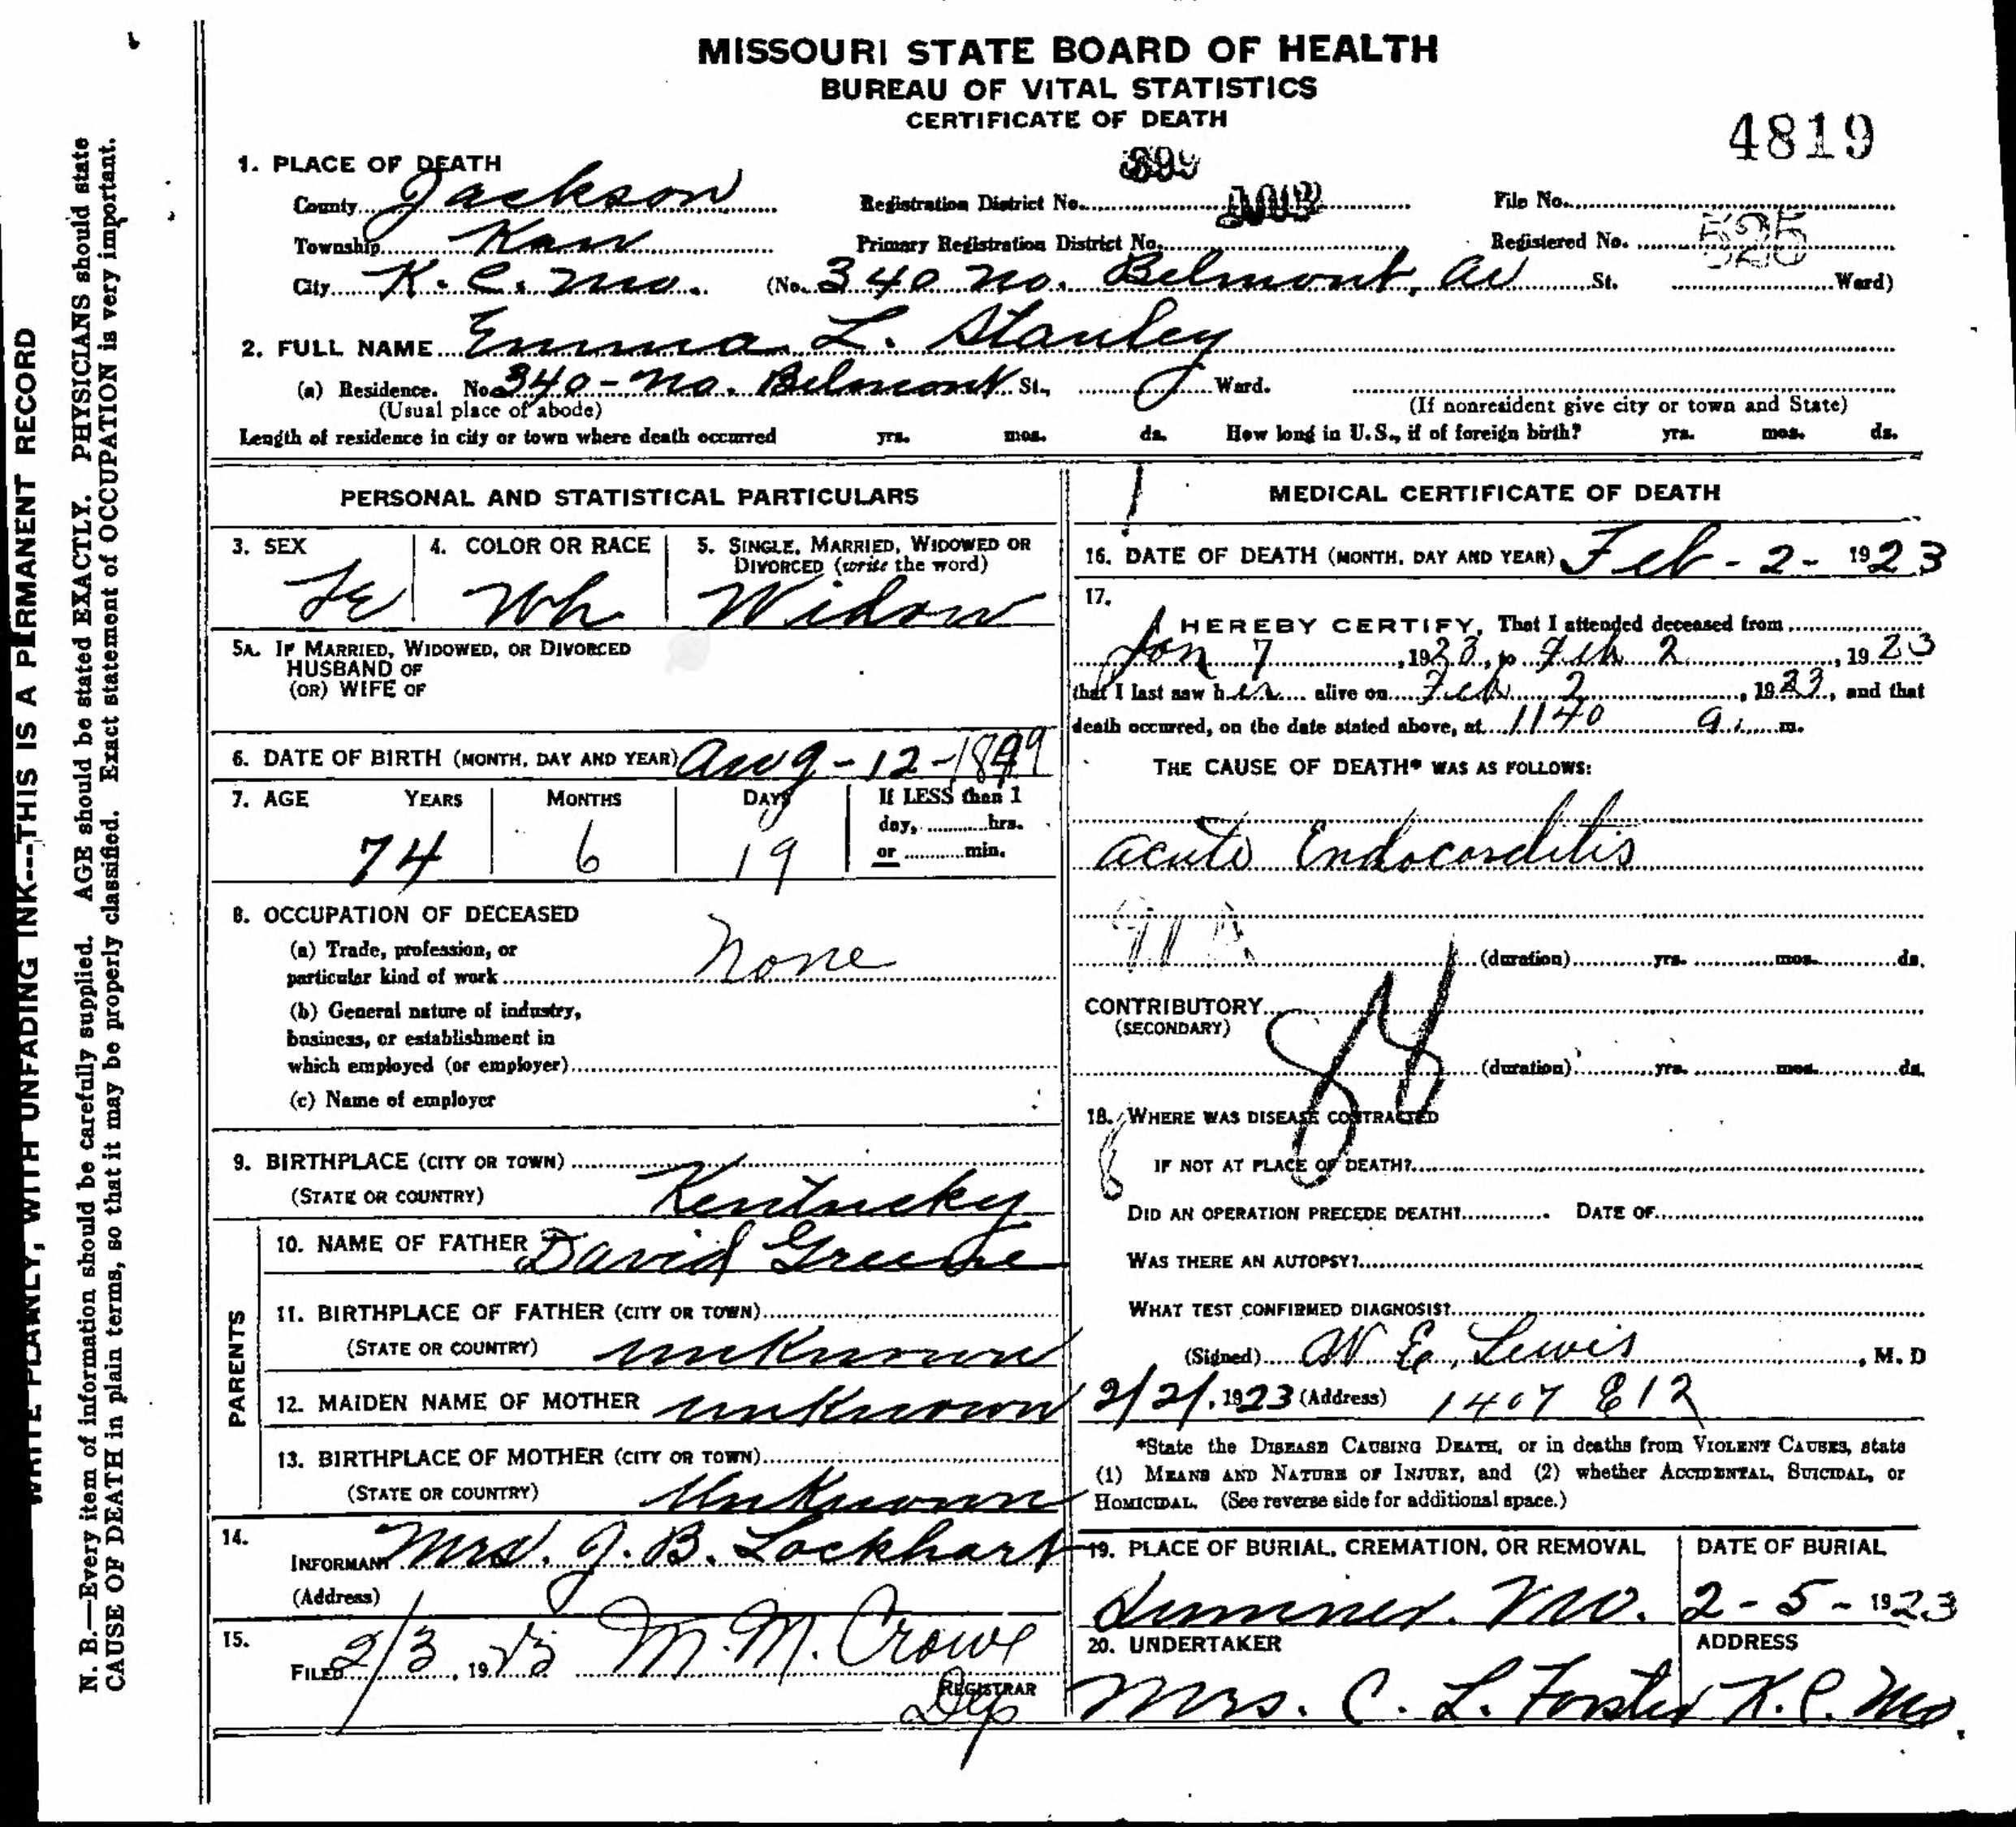 MISSOURI STATE BOARD OF HEALTH
BUREAU OF VITAL STATISTICS
CERTIFICATE OF DEATH
4819
1. PLACE OF DEATH
County Jackson Registration District No. 399 File No.
Township Kaw Primary Registration District No. Registered No. 525
City K. C. Mo. (No. 340 No. Belmont, Av St. Ward)
2. FULL NAME Emma L. Stanley
(a) Residence. No. 340 - No. Belmont St., Ward.
(Usual place of abode) (If nonresident give city or town and State)
Length of residence in city or town where death occurred yrs. mos. ds. How long in U.S., if of foreign birth? yrs. mos. ds.
PERSONAL AND STATISTICAL PARTICULARS
3. SEX 4. COLOR OR RACE 5. SINGLE, MARRIED, WIDOWED OR
DIVORCED (write the word)
Fe Wh Widow
5A. IF MARRIED, WIDOWED, OR DIVORCED
HUSBAND OF
(OR) WIFE OF
6. DATE OF BIRTH (MONTH, DAY AND YEAR) Aug - 12 - 1849
7. AGE YEARS MONTHS DAYS If LESS than 1
day, hrs.
or min.
74 6 19
8. OCCUPATION OF DECEASED
(a) Trade, profession, or
particular kind of work None
(b) General nature of industry,
business, or establishment in
which employed (or employer)
(c) Name of employer
9. BIRTHPLACE (CITY OR TOWN)
(STATE OR COUNTRY) Kentucky
PARENTS
10. NAME OF FATHER David Greene
11. BIRTHPLACE OF FATHER (CITY OR TOWN)
(STATE OR COUNTRY) unknown
12. MAIDEN NAME OF MOTHER unknown
13. BIRTHPLACE OF MOTHER (CITY OR TOWN)
(STATE OR COUNTRY) Unknown
14.
INFORMANT Mrs. J. B. Lockhart
(Address)
15.
FILED 2/3, 1923 M. M. Crowe
REGISTRAR
Dep
MEDICAL CERTIFICATE OF DEATH
16. DATE OF DEATH (MONTH, DAY AND YEAR) Feb - 2 - 1923
17.
I HEREBY CERTIFY, That I attended deceased from
Jan 7, 1923, to Feb 2, 1923
that I last saw her alive on Feb 2, 1923, and that
death occurred, on the date stated above, at 1140 a. m.
THE CAUSE OF DEATH* WAS AS FOLLOWS:
Acute Endocarditis
(duration) yrs. mos. ds.
CONTRIBUTORY
(SECONDARY)
(duration) yrs. mos. ds.
18. WHERE WAS DISEASE CONTRACTED
IF NOT AT PLACE OF DEATH?
DID AN OPERATION PRECEDE DEATH? DATE OF
WAS THERE AN AUTOPSY?
WHAT TEST CONFIRMED DIAGNOSIS?
(Signed) W. E. Lewis, M. D
2/2/, 1923 (Address) 1407 E 12
*State the DISEASE CAUSING DEATH, or in deaths from VIOLENT CAUSES, state
(1) MEANS AND NATURE OF INJURY, and (2) whether ACCIDENTAL, SUICIDAL, or
HOMICIDAL. (See reverse side for additional space.)
19. PLACE OF BURIAL, CREMATION, OR REMOVAL DATE OF BURIAL
Sumner. Mo. 2 - 5 - 1923
20. UNDERTAKER ADDRESS
Mrs. C. L. Forster K. C. Mo.
WRITE PLAINLY, WITH UNFADING INK---THIS IS A PERMANENT RECORD
N. B.—Every item of information should be carefully supplied. AGE should be stated EXACTLY. PHYSICIANS should state
CAUSE OF DEATH in plain terms, so that it may be properly classified. Exact statement of OCCUPATION is very important.